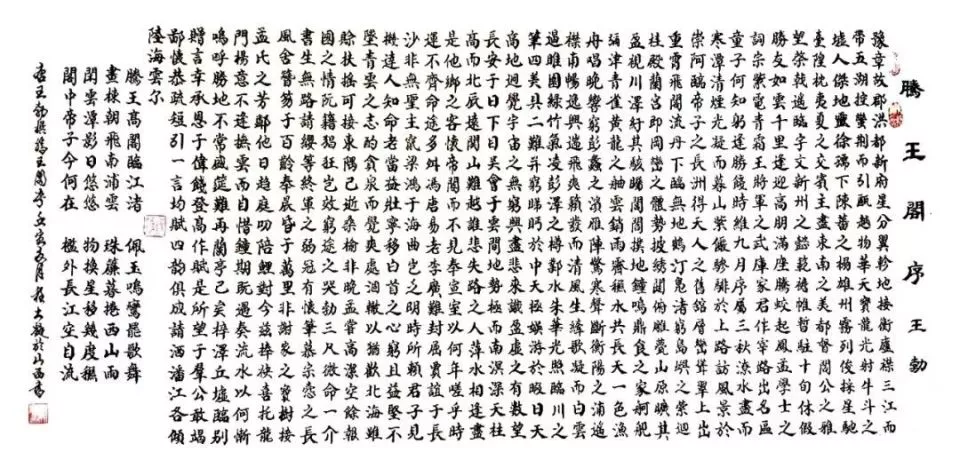 騰王閣序 王勃
豫章故郡洪都新府星分翼軫地接衡廬襟三江而
帶五湖控蠻荊而引甌越物華天寶龍光射牛斗之
墟人傑地靈徐孺下陳蕃之榻雄州霧列俊採星馳
臺隍枕夷夏之交賓主盡東南之美都督閻公之雅
望棨戟遙臨宇文新州之懿範襜帷暫駐十旬休假
勝友如雲千里逢迎高朋滿座騰蛟起鳳孟學士之
詞宗紫電青霜王將軍之武庫家君作宰路出名區
童子何知躬逢勝餞時維九月序屬三秋潦水盡而
寒潭清煙光凝而暮山紫儼驂騑於上路訪風景於
崇阿臨帝子之長洲得天人之舊館層巒聳翠上出
重霄飛閣流丹下臨無地鶴汀鳧渚窮島嶼之縈迴
桂殿蘭宮即岡巒之體勢披繡闥俯雕甍山原曠其
盈視川澤紆其駭矚閭閻撲地鐘鳴鼎食之家舸艦
彌津青雀黃龍之舳雲銷雨霽秋水共長天一色漁
舟唱晚響窮彭蠡之濱雁陣驚寒聲斷衡陽之浦遙
襟甫暢逸興遄飛爽籟發而清風生纖歌凝而白雲
遏睢園綠竹氣凌彭澤之樽鄴水朱華光照臨川之
筆四美具二難并窮睇眄於中天極娛遊於暇日天
高地迥覺宇宙之無窮興盡悲來識盈虛之有數望
長安于日下目吳會于雲間地勢極而南溟深天柱
高而北辰遠關山難越誰悲失路之人萍水相逢盡
是他鄉之客懷帝閽而不見奉宣室以何年嗟乎時
運不齊命途多舛馮唐易老李廣難封屈賈誼于長
沙非無聖主竄梁鴻于海曲豈乏明時所賴君子見
機達人知命老當益壯寧移白首之心窮且益堅不
墜青雲之志酌貪泉而覺爽處涸轍以猶歡北海雖
賒扶搖可接東隅已逝桑榆非晚孟嘗高潔空餘報
國之情阮籍猖狂豈效窮途之哭勃三尺微命一介
書生無路請纓等終軍之弱冠有懷筆慕宗慤之長
風舍簪笏于百齡奉晨昏于萬里非謝家之寶樹接
孟氏之芳鄰他日趨庭叨陪鯉對今茲捧袂喜托龍
門楊意不逢撫雲而自惜鍾期既遇奏流水以何慚
嗚呼勝地不常盛筵難再蘭亭已矣梓澤丘墟臨別
贈言幸承恩于偉餞登高作賦是所望于群公敢竭
鄙懷恭疏短引一言均賦四韻俱成請灑潘江各傾
陸海雲爾
騰王高閣臨江渚 佩玉鳴鸞罷歌舞
畫棟朝飛南浦雲 珠簾暮捲西山雨
閑雲潭影日悠悠 物換星移幾度秋
閣中帝子今何在 檻外長江空自流
唐王勃撰騰王閣序 五月 於山西書